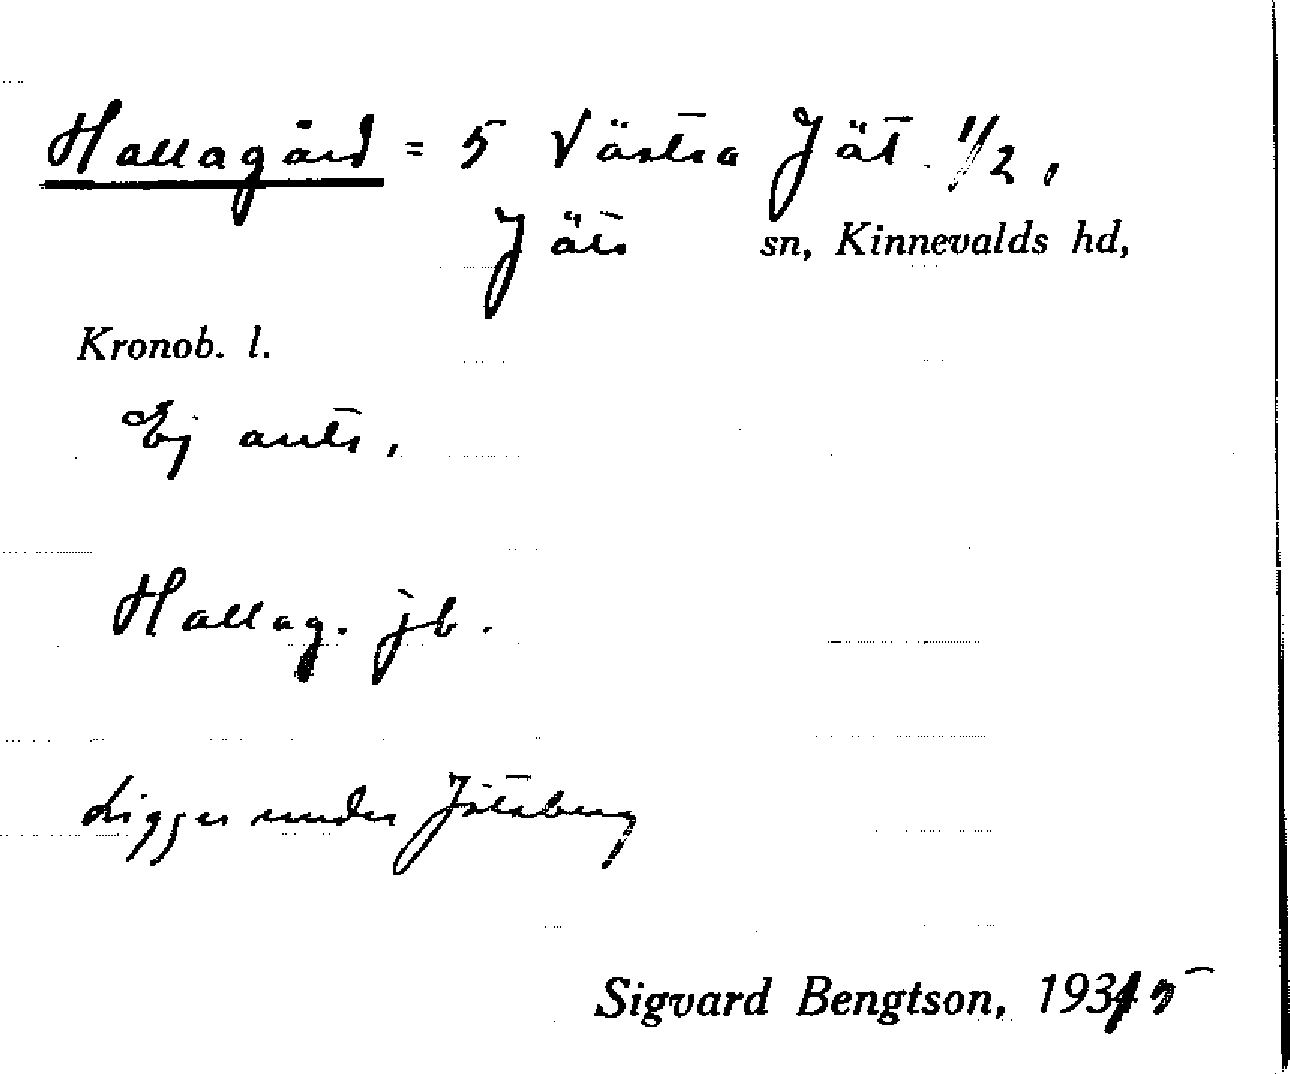 Hallagård = 5 Västra Jät 1/2,
Jäts sn, Kinnevalds hd,
Kronob. l.
Ej antr.
Hallag. jb.
Ligger under Jätsberg
Sigvard Bengtson, 1935